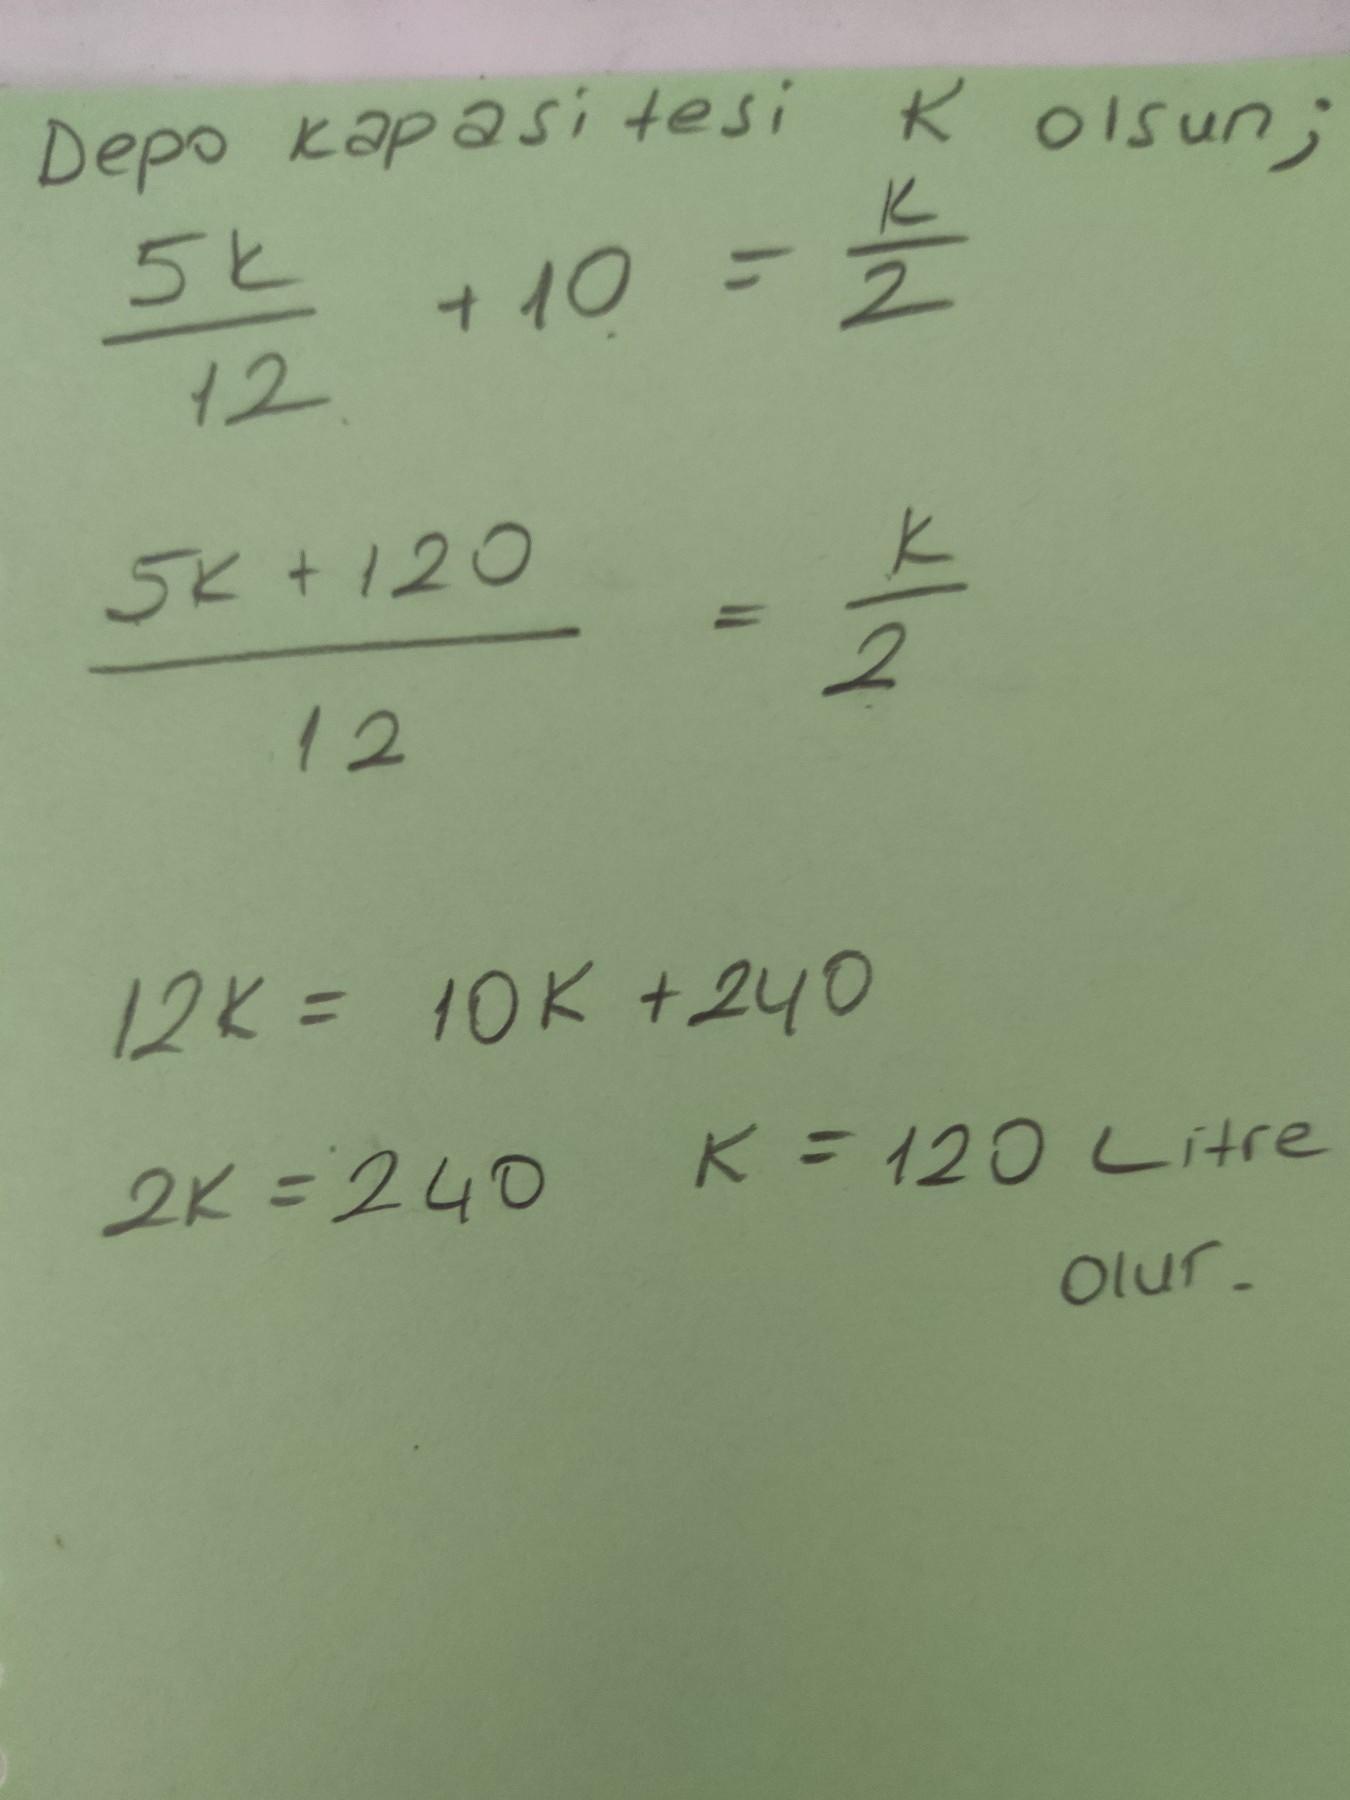 Depo kapasitesi K olsun;
5K/12 + 10 = K/2
5K + 120/12 = K/2
12K = 10K + 240
2K = 240 K = 120 Litre
olur.